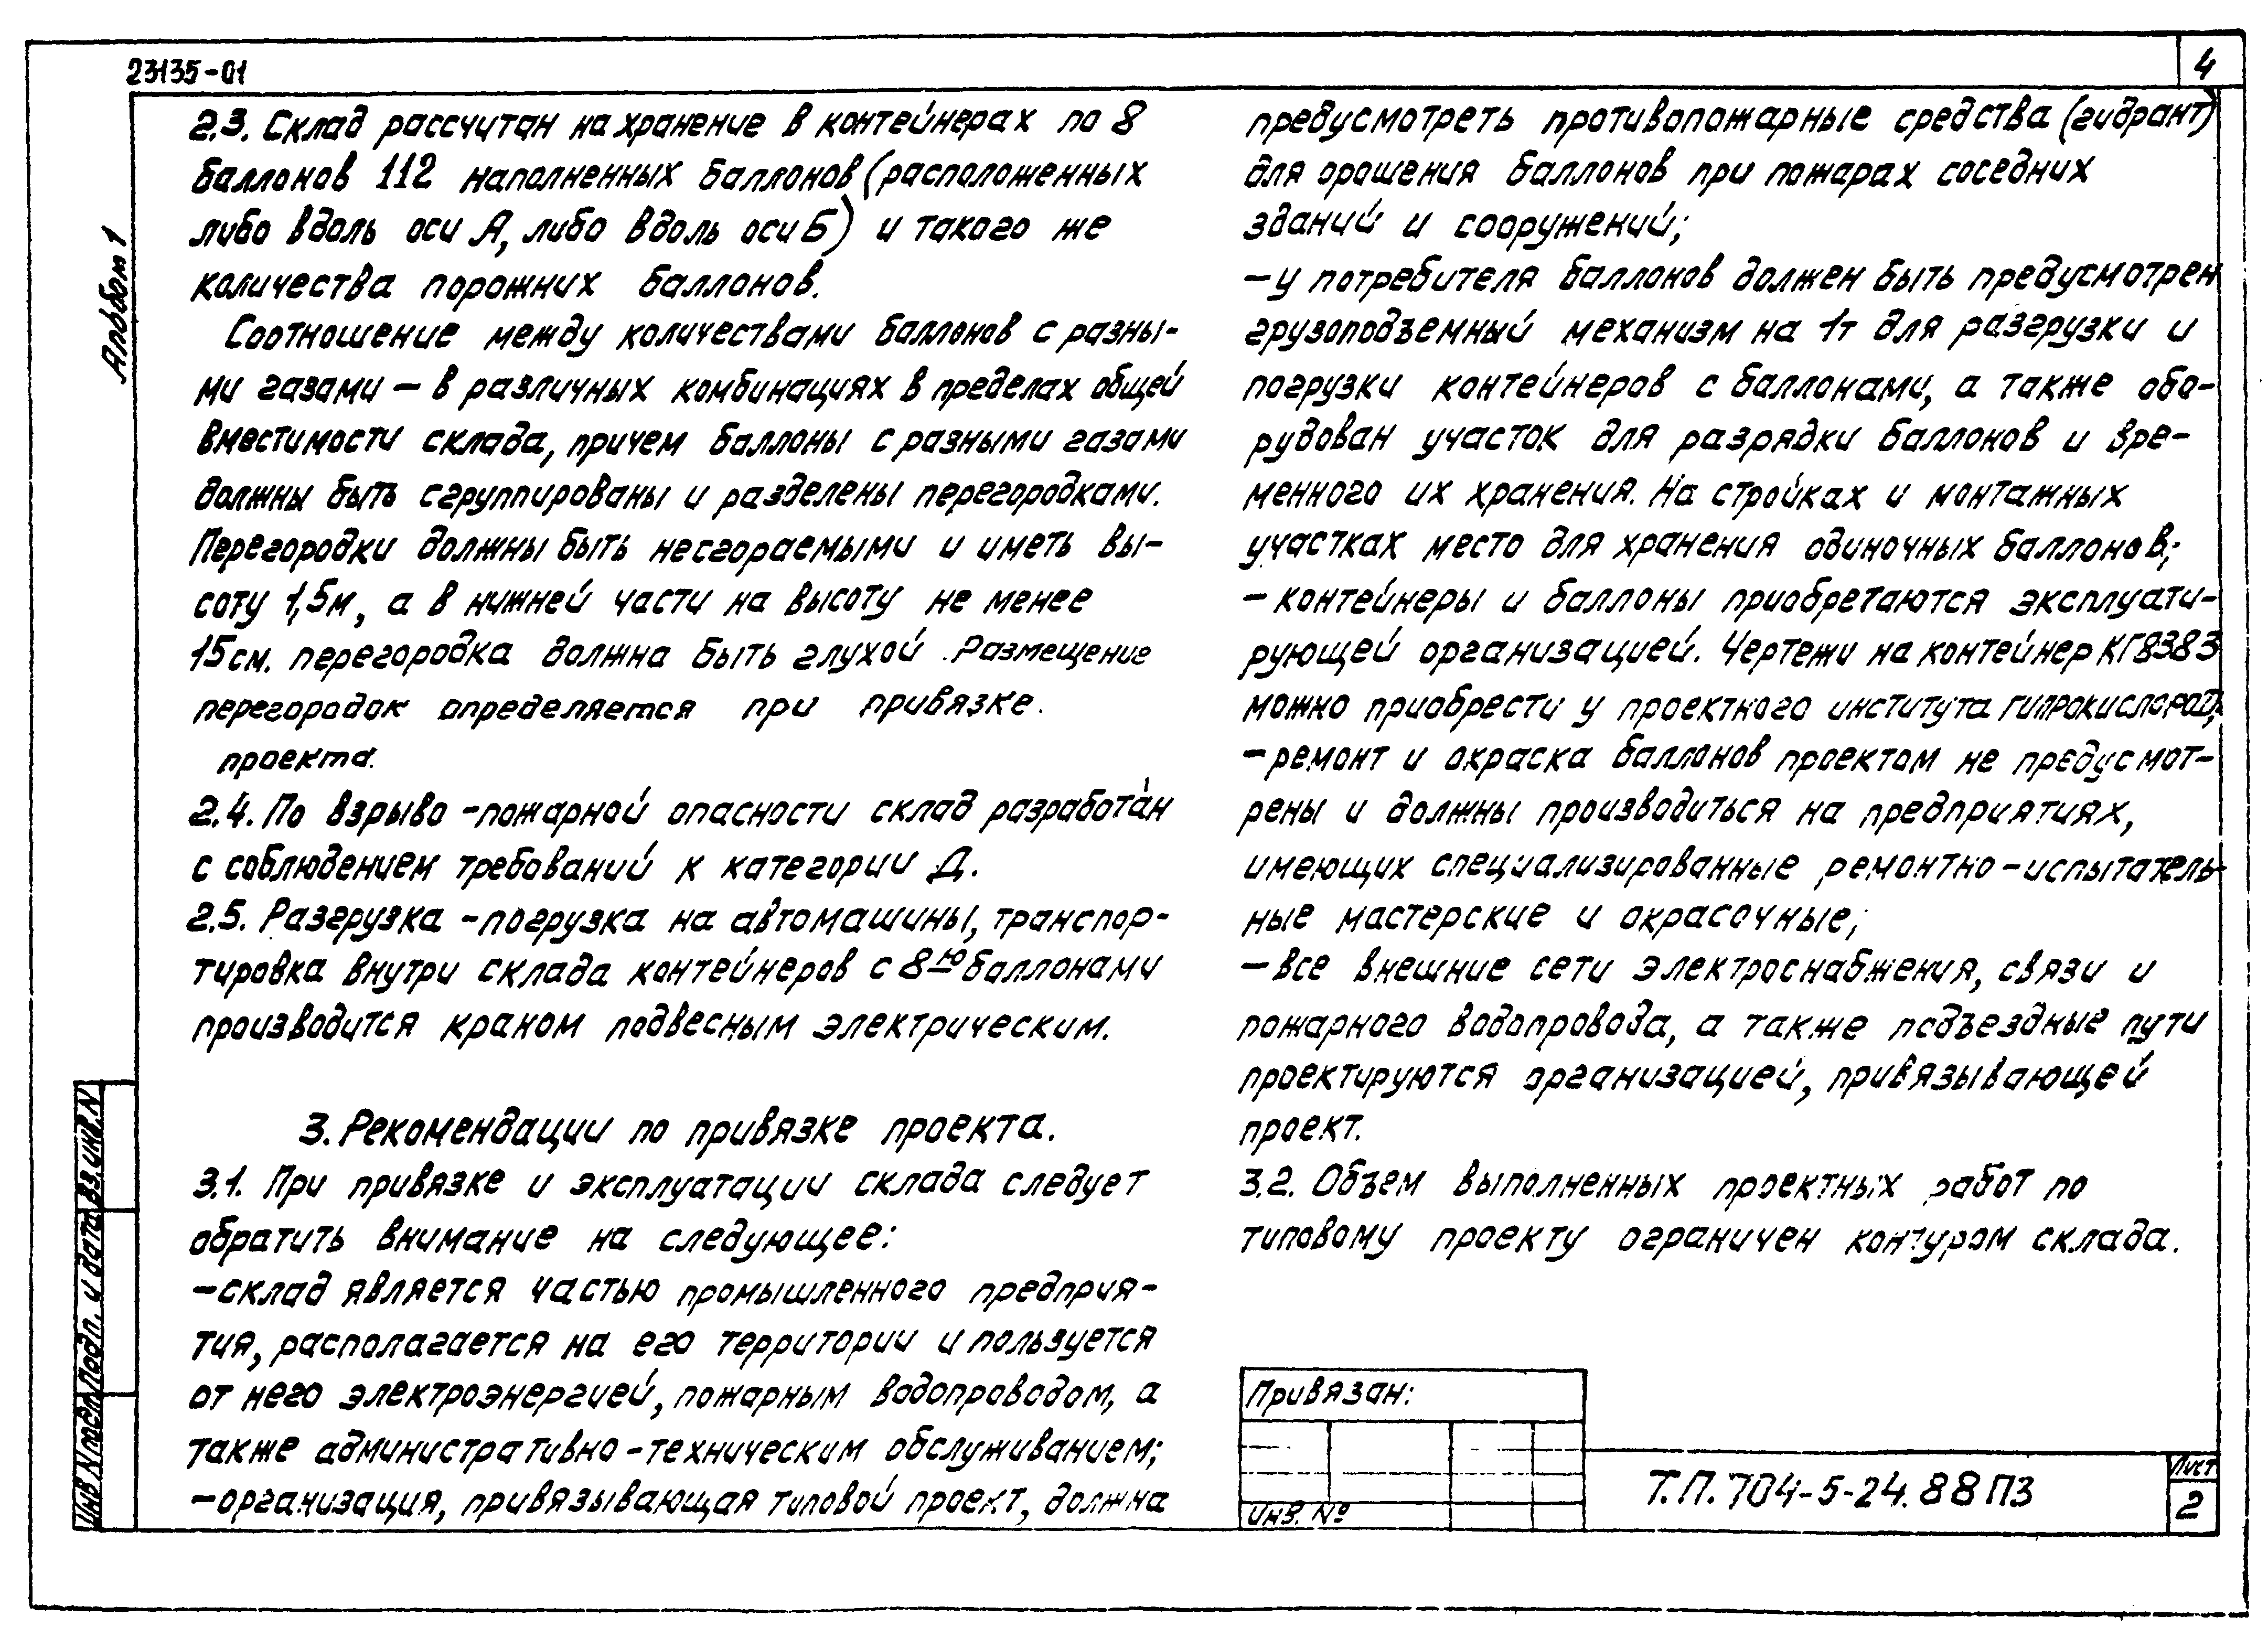 23135-01
4
Альбом 1
2.3. Склад рассчитан на хранение в контейнерах по 8
баллонов 112 наполненных баллонов (расположенных
либо вдоль оси А, либо вдоль оси Б) и такого же
количества порожних баллонов.
Соотношение между количествами баллонов с разны-
ми газами - в различных комбинациях в пределах общей
вместимости склада, причем баллоны с разными газами
должны быть сгруппированы и разделены перегородками.
Перегородки должны быть несгораемыми и иметь вы-
соту 1,5м, а в нижней части на высоту не менее
15см. перегородка должна быть глухой. Размещение
перегородок определяется при привязке.
проекта.
2.4. По взрыво-пожарной опасности склад разработан
с соблюдением требований к категории Д.
2.5. Разгрузка-погрузка на автомашины, транспор-
тировка внутри склада контейнеров с 8ю баллонами
производится краном подвесным электрическим.
3. Рекомендации по привязке проекта.
3.1. При привязке и эксплуатации склада следует
обратить внимание на следующее:
-склад является частью промышленного предприя-
тия, располагается на его территории и пользуется
от него электроэнергией, пожарным водопроводом, а
также административно-техническим обслуживанием;
-организация, привязывающая типовой проект, должна
предусмотреть противопожарные средства (гидрант)
для орошения баллонов при пожарах соседних
зданий и сооружений;
-у потребителя баллонов должен быть предусмотрен
грузоподъемный механизм на 1т для разгрузки и
погрузки контейнеров с баллонами, а также обо-
рудован участок для разрядки баллонов и вре-
менного их хранения. На стройках и монтажных
участках место для хранения одиночных баллонов;
-контейнеры и баллоны приобретаются эксплуати-
рующей организацией. Чертежи на контейнер КГ8383
можно приобрести у проектного института ГИПРОКИСЛОРОД;
-ремонт и окраска баллонов проектом не предусмот-
рены и должны производиться на предприятиях,
имеющих специализированные ремонтно-испытатель-
ные мастерские и окрасочные;
-все внешние сети электроснабжения, связи и
пожарного водопровода, а также подъездные пути
проектируются организацией, привязывающей
проект.
3.2. Объем выполненных проектных работ по
типовому проекту ограничен контуром склада.
Привязан:
Инв. №
Т.П. 704-5-24.88 ПЗ
Лист
2
Инв N подл
Подп. и дата
Вз. инв. N